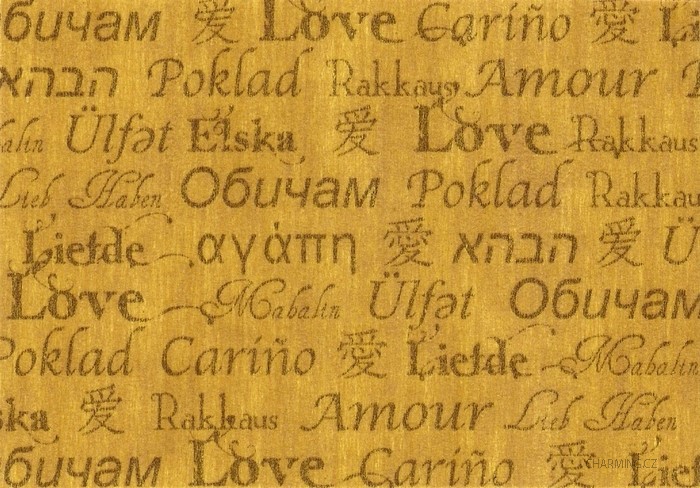 бичам 爱 Love Cariño 愛 Li
הבהא Poklad Rakkaus Amour
alin Ülfət Elska 爱 Love Rakkaus
Lieb Haben Обичам Poklad Rakkau
Liefde αγάπη 愛 הבהא 爱 Ü
Love Mabalin Ülfət Обичам
Poklad Cariño 愛 Liefde Mabalin
ska 爱 Rakkaus Amour Lieb Haben
бичам Love Cariño 愛 Lief
CHARMING.CZ